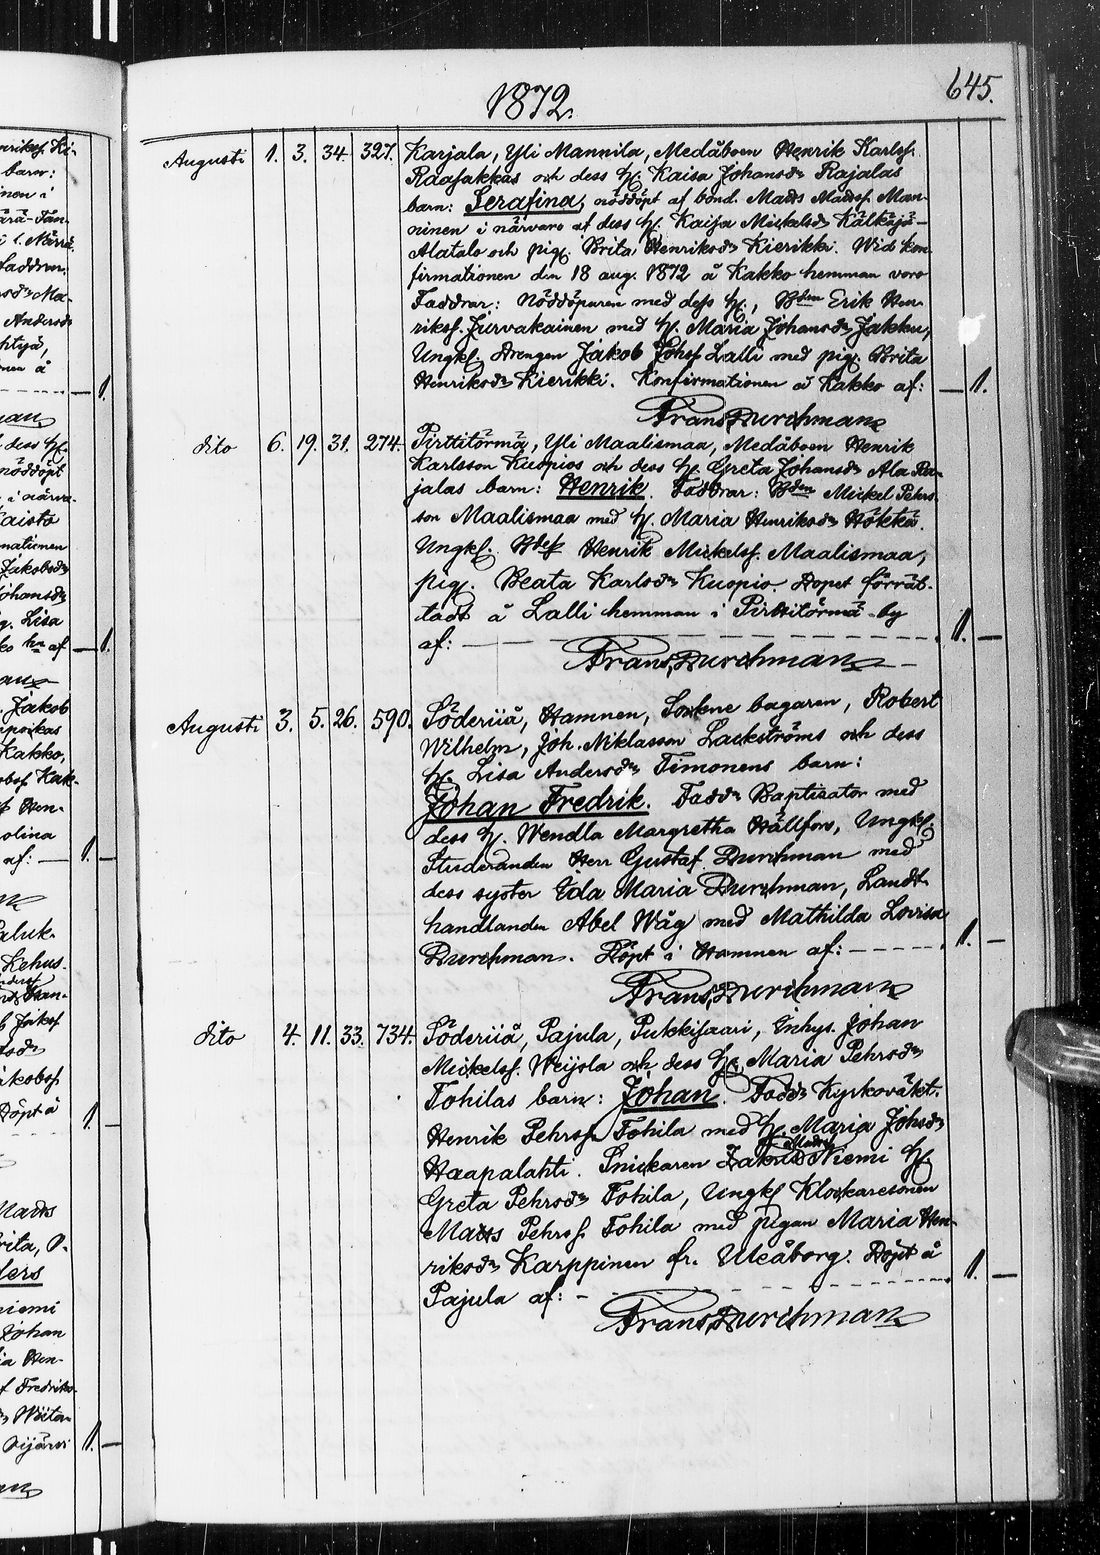 645.
1872.
Augusti 1. 3. 34. 327. Karjala, Yli Mannila, Medåboen Henrik Karlss.
Raasakkas och dess h. Kaisa Johansdr Rajalas
barn: Serafina, nöddöpt af bond. Matts Mattss. Man-
ninen i närvaro af dess h. Kaisa Mickelsdr Kälkäjä-
Alatalo och pig. Brita Henriksdr Kierikki. Wid kon
firmationen den 18 aug. 1872 å Kakko hemman voro
Faddrar: Nöddöparen med dess h., Bden Erik Hen-
rikss. Jurvakainen med h. Maria Johansdr Jakku,
Ungkl. Drengen Jakob Johss Lalli med pig. Brita
Henriksdr Kierikki. Konfirmationen å Kakko af: — 1.
Frans Durchman
dito 6. 19. 31. 274. Pirttitörmä, Yli Maalismaa, Medåboen Henrik
Karlsson Kuopios och dess h. Greta Johansdr Ala Ra-
jalas barn: Henrik. Faddrar: Bden Mickel Pehrs-
son Maalismaa med h. Maria Henriksdr Hökkä.
Ungkl. Henrik Mickelss. Maalismaa,
pig. Beata Karlsdr Kuopio. Dopet förrät-
tadt å Lalli hemman i Pirttitörmä by
af: 1. —
Frans Durchman
Augusti 3. 5. 26. 590. Söderijå, Hamnen, Sockne bagaren, Robert
Wilhelm, Joh. Niklasson Lackströms och dess
h. Lisa Andersdr Timonens barn:
Johan Fredrik. Faddr Baptisator med
dess h. Wendla Margretha Hällfors, Ungkl.
Studeranden Herr Gustaf Durchman med
dess syster Ida Maria Durchman, Landt-
handlanden Abel Wåg med Mathilda Lovisa
Durchman. Döpt i Hamnen af: 1. —
Frans Durchman
dito 4. 11. 33. 734. Söderijå, Pajula, Pukkisaari, Inhys. Johan
Mickelss. Weijola och dess h. Maria Pehrsdr
Tohilas barn: Johan. Faddr Kyrkoväkt.
Henrik Pehrss. Tohila med h. Maria Johsdr
Haapalahti. Snickaren Niemi h.
Greta Pehrsdr Tohila, Ungkl Klockaresonen
Matts Pehrss. Tohila med pigan Maria Hen-
riksdr Karppinen fr. Uleåborg. Döpt å
Pajula af: 1. —
Frans Durchman